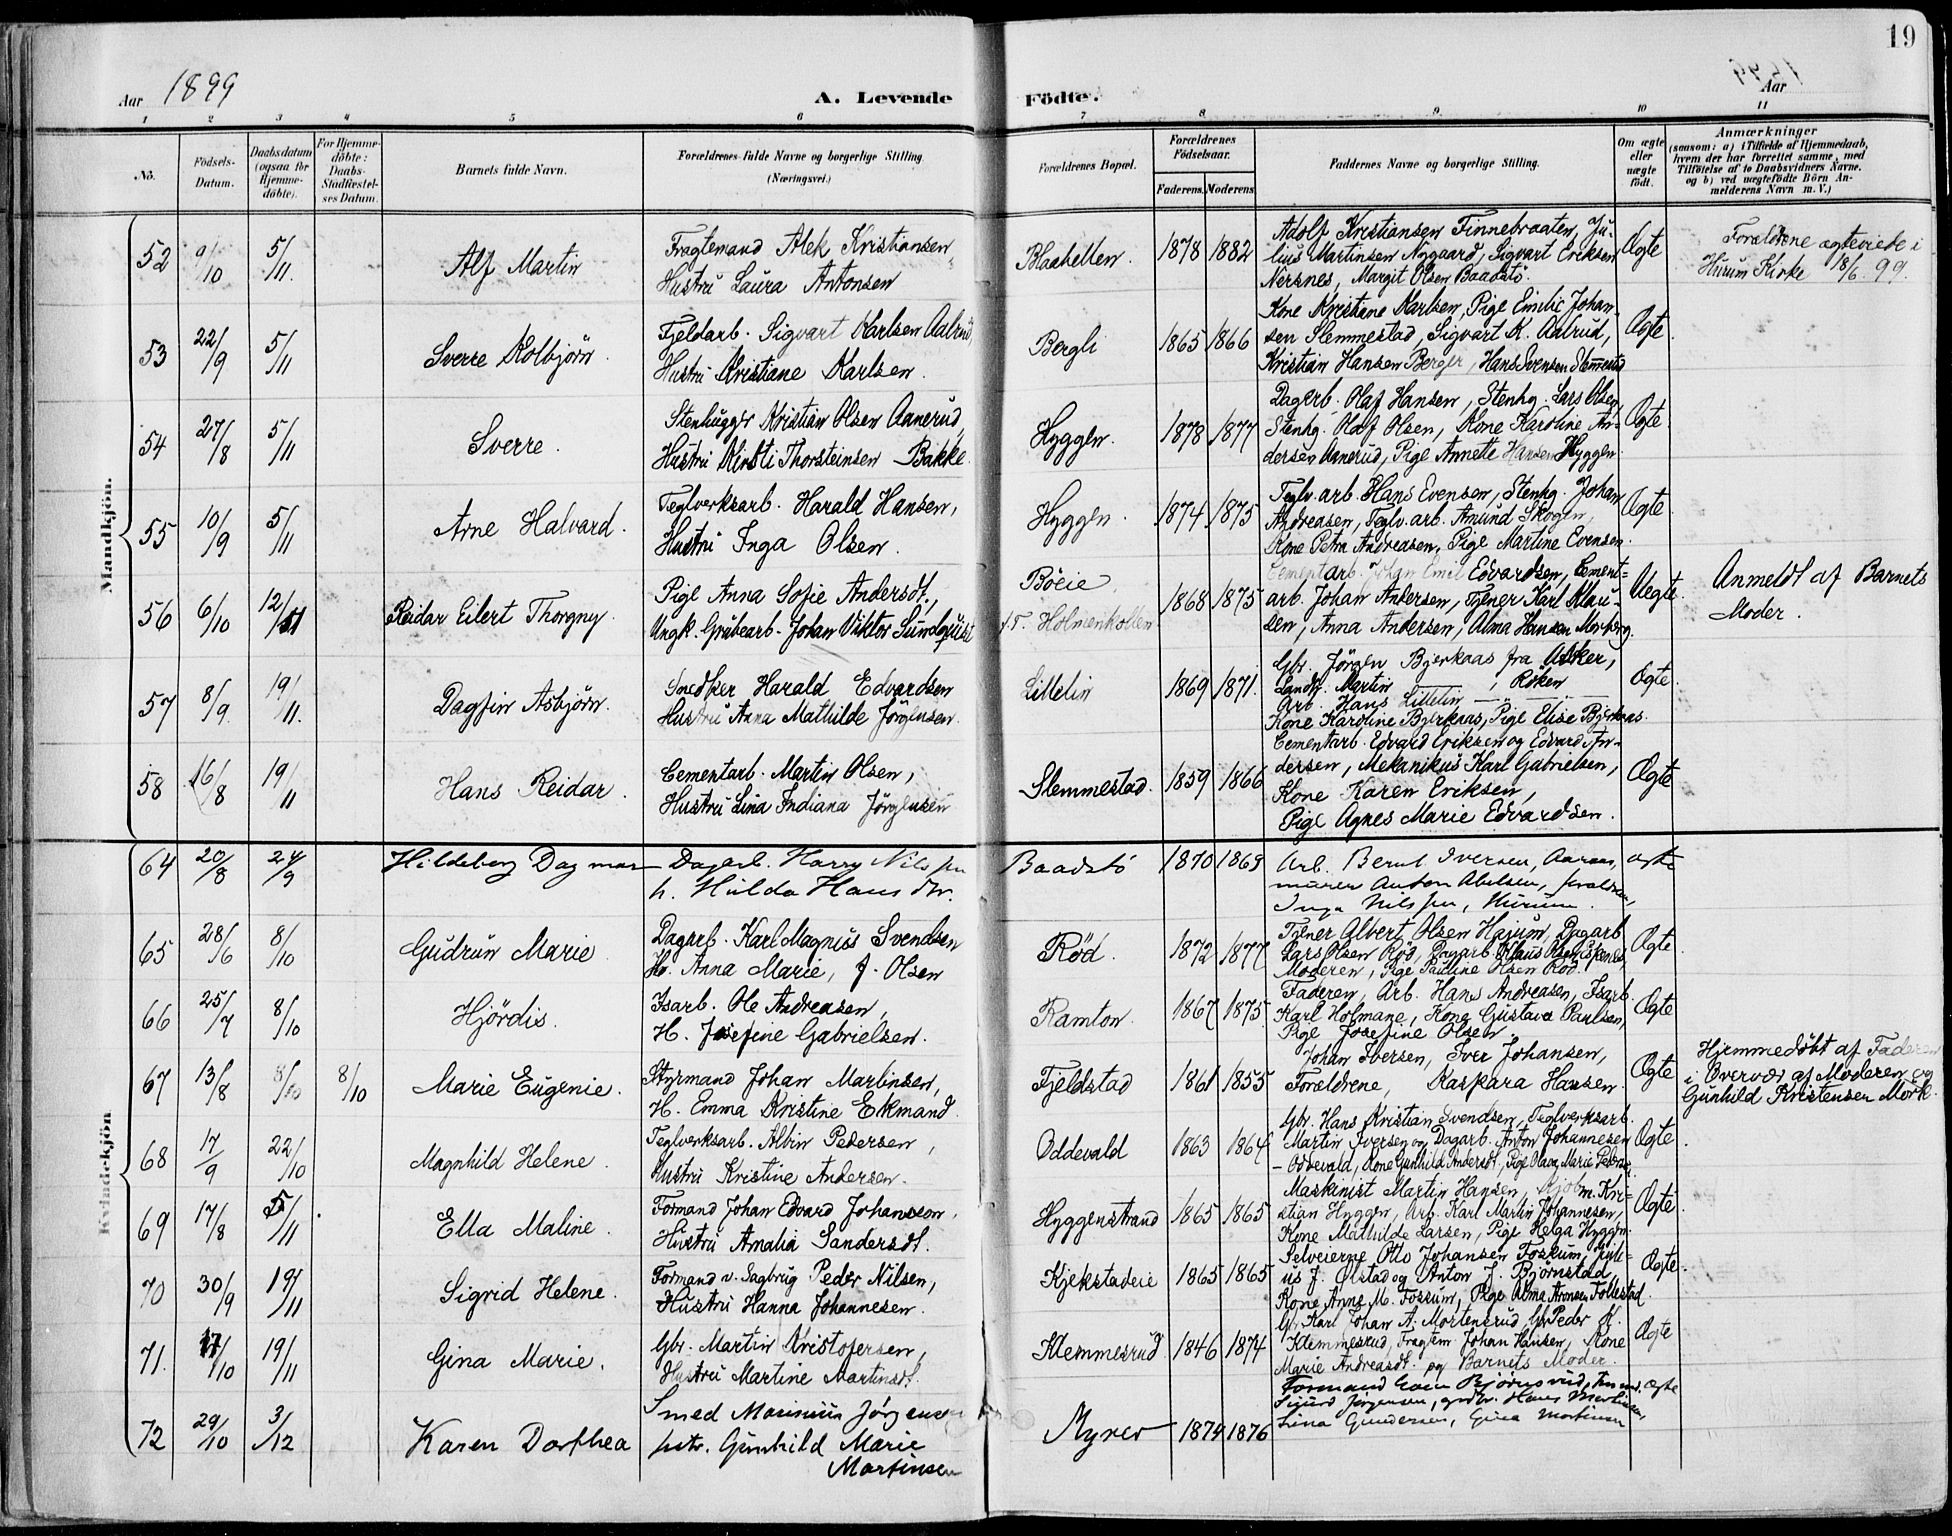 19
Aar 1899
A. Levende Födte.
Aar
1 2 3 4 5 6 7 8 9 10 11
No.
Födsels-Datum.
Daabsdatum (ogsaa for Hjemmedöbte).
For Hjemmedöbte: Daabs-Stadfæstelses Datum.
Barnets fulde Navn.
Forældrenes fulde Navne og borgerlige Stilling. (Næringsvei.)
Forældrenes Bopæl.
Forældrenes Födselsaar.
Faderens. Moderens.
Faddernes Navne og borgerlige Stilling.
Om ægte eller uægte født.
Anmærkninger
(saasom: a) i Tilfælde af Hjemmedaab, hvem der har forrettet samme, med Tilföielse af to Daabsvidners Navne. og b) ved uægtefödte Börn Anmelderens Navn m. V.)
Mandkjön.
52 9/10 5/11. Alf Martin
Fragtemand Alek Kristiansen
Hustru Laura Antonsen
Blaahellen. 1878 1882
Adolf Kristiansen Finnebraaten, Ju-
lius Martinsen Nygaard, Sigvart Eriksen
Nersnes, Margit Olsen Baadstö.
Ægte
Forældrene ægteviede i
Hurum Kirke 18/6 99.
53 22/9 5/11 Sverre Kolbjörn.
Fjeldarb. Sigvart Karlsen Aalrud,
Hustru Kristiane Karlsen.
Bergli 1865 1866
Kone Kristiane Karlsen, Pige Emilie Johan-
sen Slemmestad, Sigvart K. Aalrud,
Kristian Hansen Berger, Hans Svensen Slemmestad
Ægte.
54 27/8 5/11 Sverre.
Stenhugger Kristian Olsen Aanerud,
Hustru Kirsti Thorsteinsen Bakke.
Hyggen. 1878 1877
Dagarb. Olaf Hansen, Stenhg. Lars Olsen,
Stenhg. Olaf Olsen, Kone Karoline An-
dersen Aanerud, Pige Annette Hansen Hyggen
Ægte.
55 10/9 5/11 Arne Halvard.
Teglverksarb. Harald Hansen,
Hustru Inga Olsen.
Hyggen. 1874 1875
Teglv. arb. Hans Evensen, Stenhg. Johan
Andreasen, Teglv. arb. Amund Skogen,
Kone Petra Andreasen, Pige Martine Evensen.
Ægte.
56 6/10 12/11 Reidar Eilert Thorgny.
Pige Anna Sofie Andersdt.,
Ungk. Grubearb. Johan Viktor Sundquist
Böeie
f.T. Holmenkollen
1868 1875
Cementarb. Johan Emil Edvardsen, Cement-
arb. Johan Andersen, Tjener Karl Klau-
sen, Anna Andersen, Alma Hansen Morberg.
Uægte.
Anmeldt af Barnets
Moder.
57 8/9. 19/11. Dagfin Asbjörn.
Snedker Harald Edvardsen
Hustru Anna Mathilde Jörgensen.
Lillelin 1869 1871.
Gbr. Jörgen Bjerkaas fra Asker,
Landh. Martin — , Röken
Arb. Hans Lillelin —
Kone Karoline Bjerkaas, Pige Elise Bjerkaas.
Ægte.
58 16/8 19/11 Hans Reidar.
Cementarb. Martin Olsen,
Hustru Lina Indiana Jörgensen
Slemmestad. 1859 1866
Cementarb. Edvard Eriksen og Edvard An-
dersen, Mekanikus Karl Gabrielsen,
Kone Karen Eriksen,
Pige Agnes Marie Edvardsen.
Ægte
Kvindekjön
64 20/8 24/9 Hildeborg Dagmar
Dagarb. Harry Nilssen
h. Hulda Hansdtr.
Baadstö 1870 1869
Arb. Bernt Iversen, Aaraas,
murer Anton Abelsen, forældrene,
Inga Nilssen, Hurum.
ægte
65 28/6 8/10 Gudrun Marie.
Dagarb. Karl Magnus Svendsen
Hu. Anna Marie, f. Olsen
Röd. 1872 1877
Tjener Albert Olsen Hajum, Dagarb
Lars Olsen Röd, Dagarb. Klaus Olsen,
Moderen, Pige Pauline Olsen Röd.
Ægte.
66 25/7 8/10 Hjördis.
Isarb. Ole Andreasen,
H. Josefine Gabrielsen.
Ramton. 1867 1875.
Faderen, Arb. Hans Andreasen, Isarb.
Karl Holmane, Kone Gustava Paulsen,
Pige Josefine Olsen.
Ægte
67 13/8 8/10 8/10 Marie Eugenie.
Styrmand Johan Martinsen,
H. Emma Kristine Ekmand.
Fjeldstad 1861 1855
Johan Iversen, Iver Johansen,
Forældrene, Kaspara Hansen.
Ægte
Hjemmedöbt af Faderen
i Overvær af Moderen og
Gunhild Kristensen Mörk.
68 17/9 22/10 Magnhild Helene.
Teglverksarb. Albin Pedersen,
Hustru Kristine Andersen.
Oddevald 1863 1864
Gbr. Hans Kristian Svendsen, Teglverksarb.
Martin Iversen og Dagarb. Anton Johannesen
— Oddevald, Kone Gunhild Andersdt, Pige Olava Marie Peders.
Ægte.
69 17/8 5/11 Ella Maline.
Formand Johan Edvard Johansson,
Hustru Amalia Sandersdt.
Hyggenstrand 1865 1865
Maskinist Martin Hansen, Kjöbm. Kri-
stian Hyggen, Arb. Karl Martin Johannesen,
Kone Mathilde Larsen, Pige Helga Hyggen.
Ægte.
70 30/9 19/11 Sigrid Helene.
Formand v. Sagbrug Peder Nilsen,
Hustru Hanna Johannesen.
Kjekstadeie 1865 1865
Selveierne Otto Johansen Foskum, Juli-
us J. Ølstad og Anton J. Björnstad,
Kone Anne M. Fossum, Pige Alma Arnesen Follestad.
Ægte.
71. 17/10 19/11 Gina Marie.
Gbr. Martin Kristofersen,
Hustru Martine Martinsdt.
Klemmesrud. 1846 1874
Gbr. Karl Johan A. Mortensrud, Gbr. Peder M.
Klemmesrud, Fragtem. Johan Hansen, Kone
Marie Andreasdt. og Barnets Moder.
Ægte
72 29/10 3/12 Karen Dorthea
Smed Marinius Jørgensen
hstr. Gunhild Marie
Martinsen
Myrer 1874 1876
Formand Bjørnsrud,
Sigurd Jørgensen, grdbr. Hans Martinsen,
Lina Gundersen, Gina Mortinsen
ægte